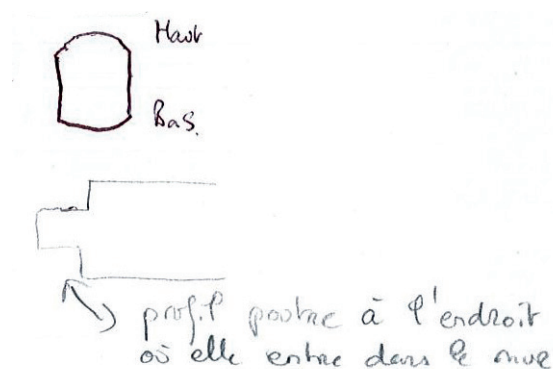 Haut
Bas.
profil poutre à l'endroit
où elle entre dans le mur